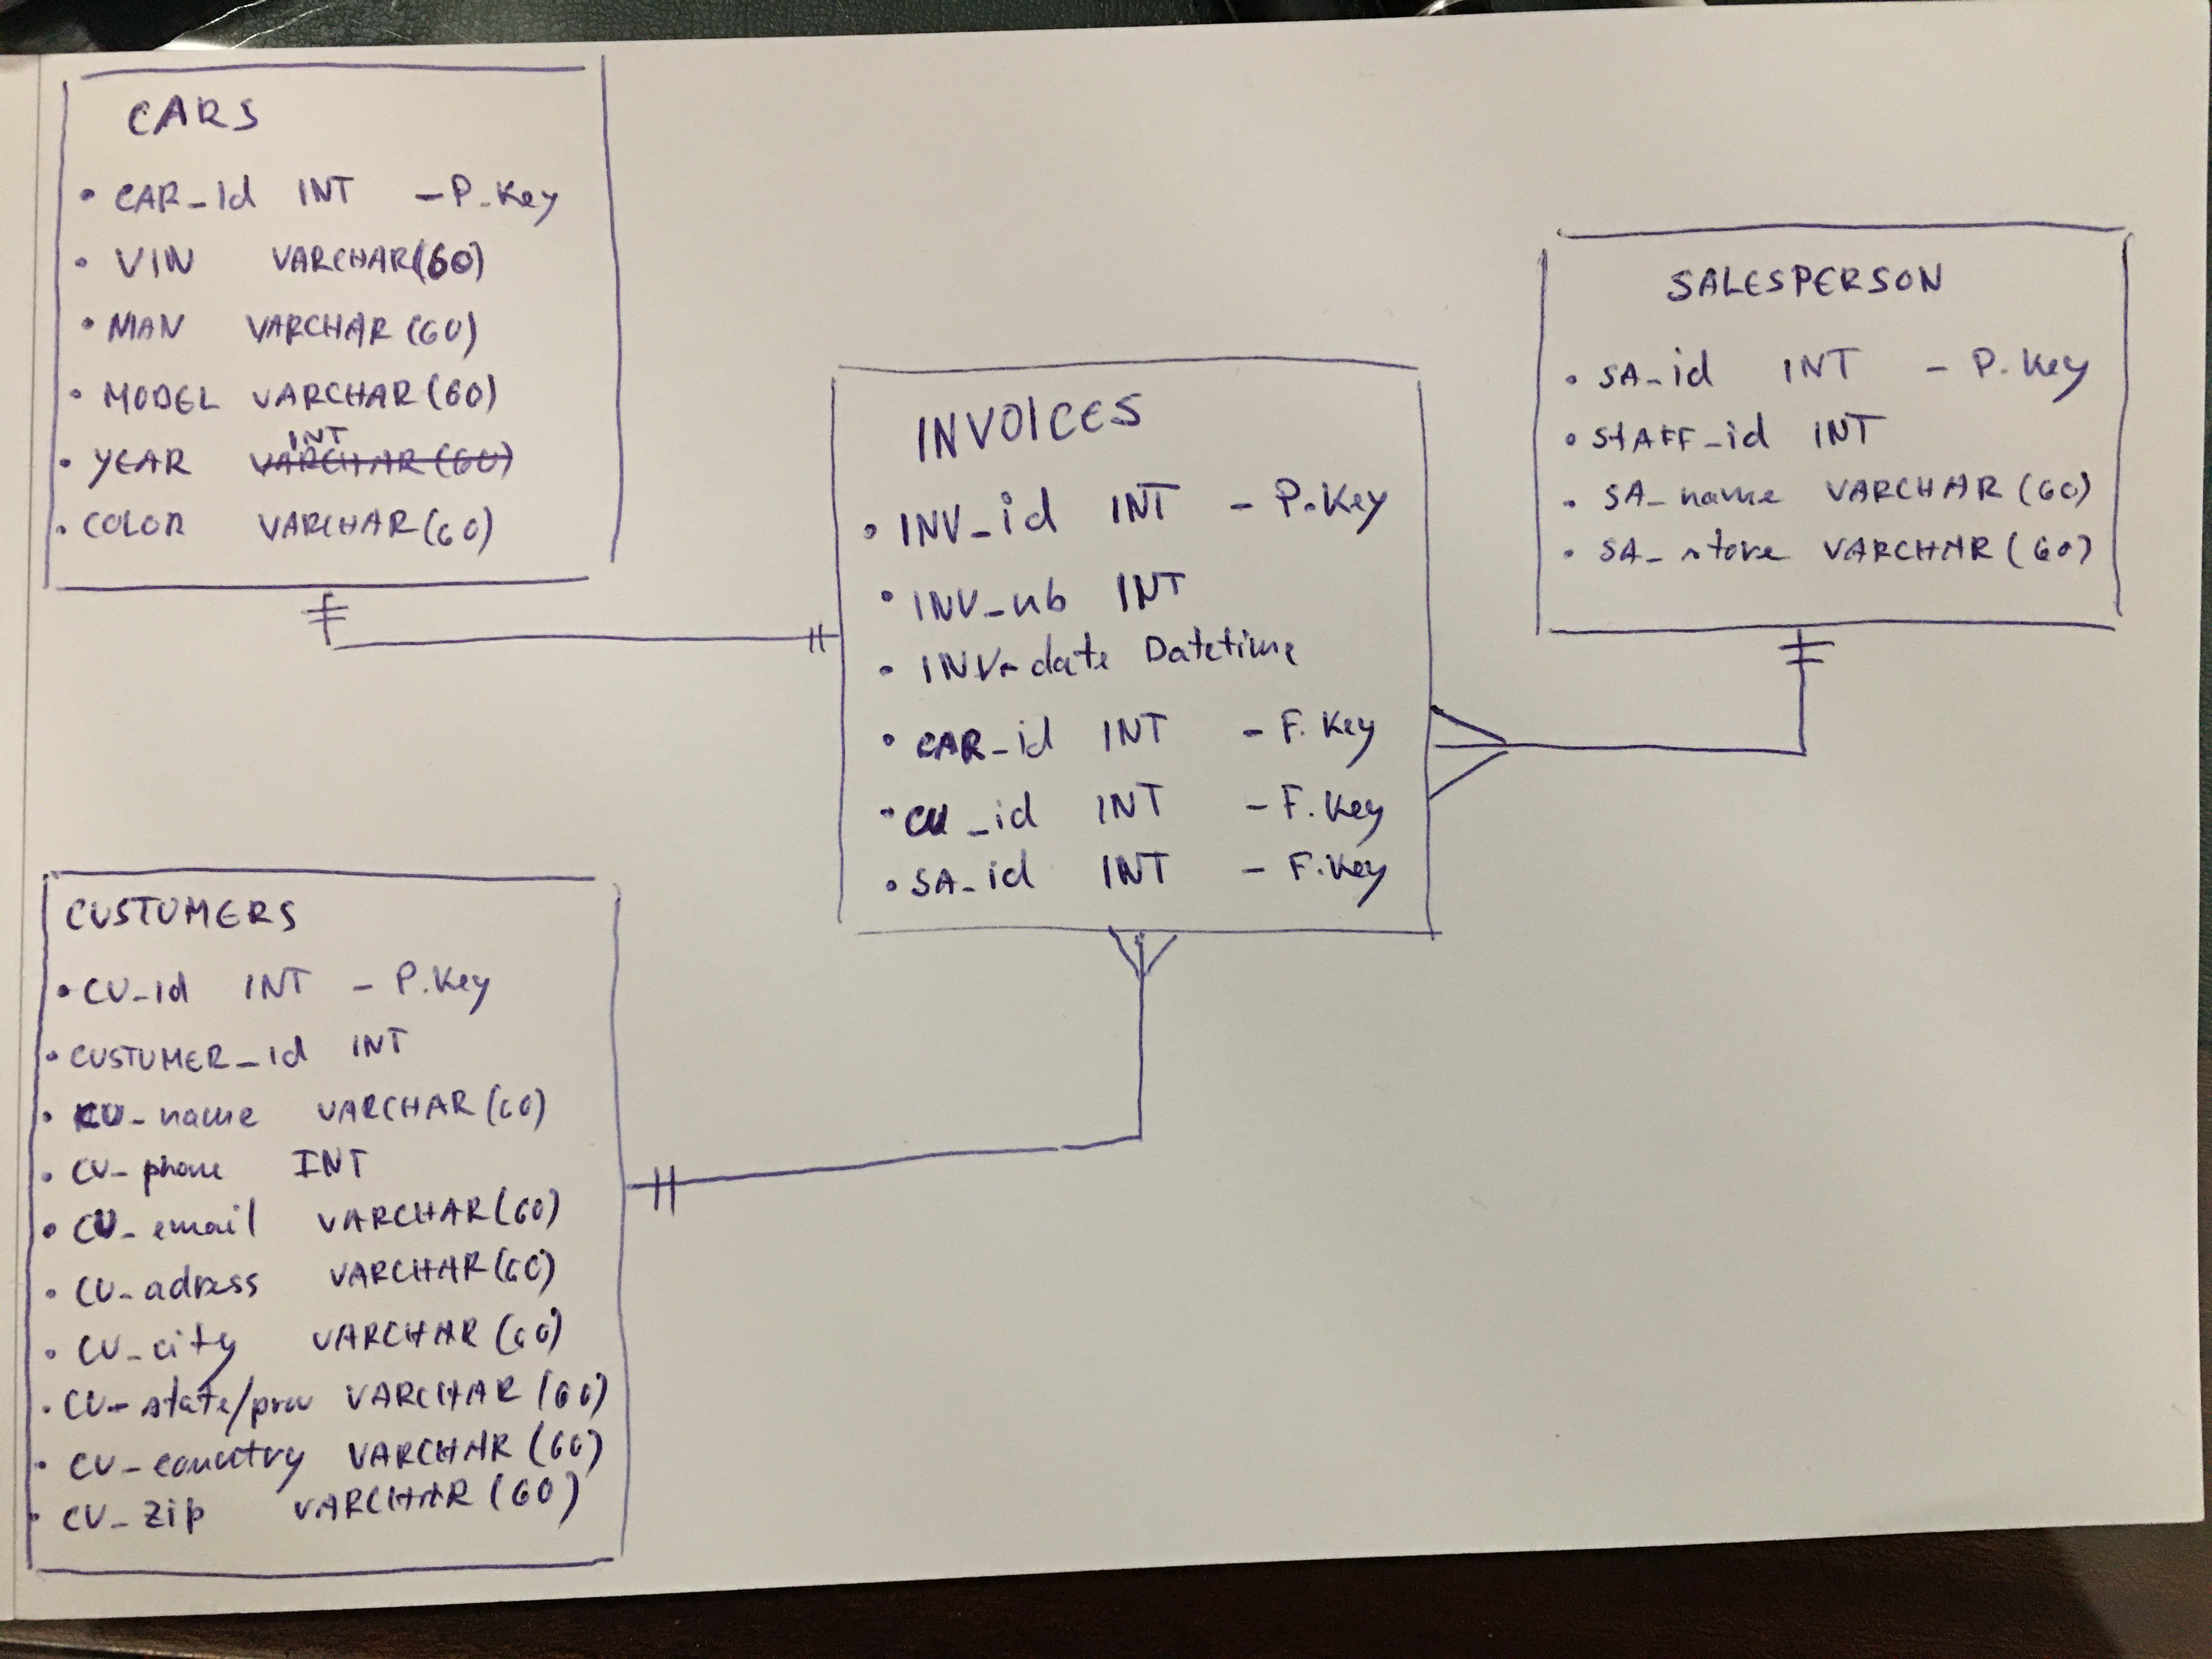 CARS
• CAR_id INT - P.Key
• VIN VARCHAR(60)
• MAN VARCHAR(60)
• MODEL VARCHAR(60)
• YEAR VARCHAR(60) INT
• COLOR VARCHAR(60)
CUSTUMERS
• CU_id INT - P.Key
• CUSTUMER_id INT
• CU_name VARCHAR(60)
• CU_phone INT
• CU_email VARCHAR(60)
• CU_adress VARCHAR(60)
• CU_city VARCHAR(60)
• CU_state/prov VARCHAR(60)
• CU_country VARCHAR(60)
• CU_zip VARCHAR(60)
INVOICES
• INV_id INT - P.Key
• INV_nb INT
• INV_date Datetime
• CAR_id INT - F.Key
• CU_id INT - F.Key
• SA_id INT - F.Key
SALESPERSON
• SA_id INT - P.Key
• STAFF_id INT
• SA_name VARCHAR(60)
• SA_store VARCHAR(60)